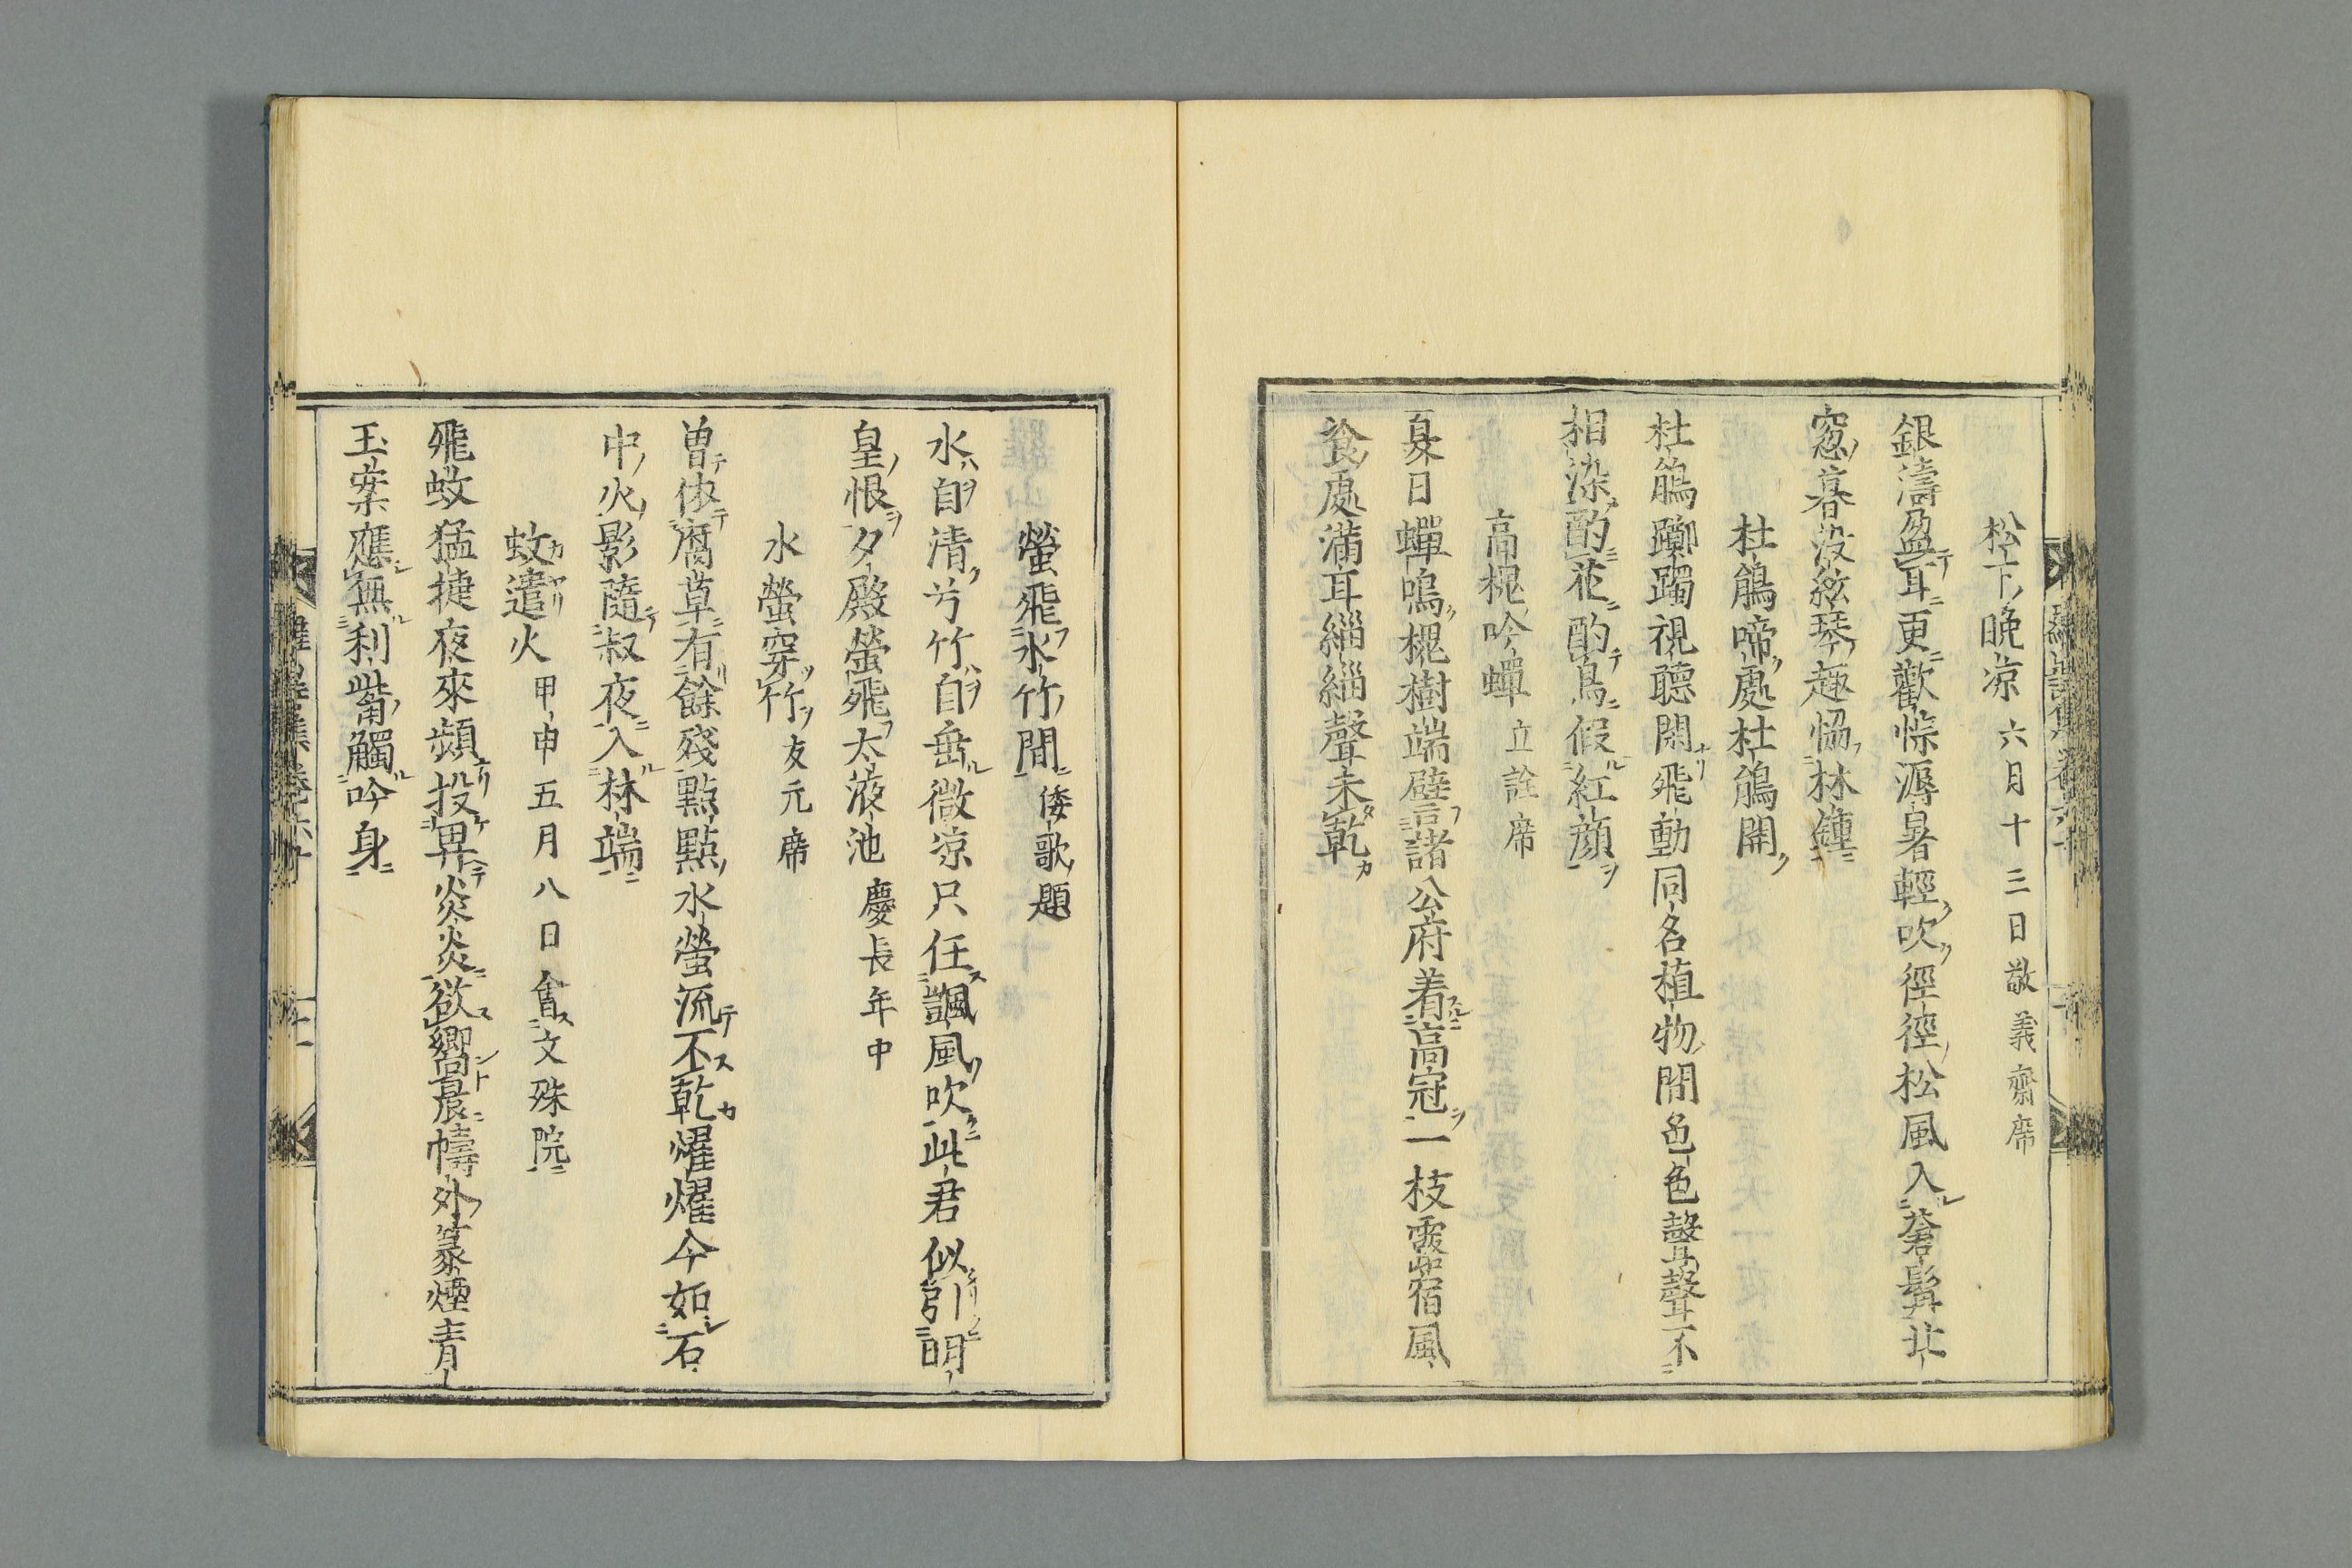 松下晩凉 六月十三日敬義齋席
銀濤盈耳更歡悰溽暑輕吹徑徑松風入蒼髯北
窓暮没絃琴趣恊林鐘
杜鵑啼處杜鵑開
杜鵑躑躅視聽閑飛動同名植物開色色聲聲不
相染酌花酌鳥假紅顔
高槐吟蟬 立詮席
夏日蟬鳴槐樹端譬諸公府着高冠一枝露宿風
飡處滿耳緇緇聲未乾
螢飛水竹間 倭歌題
水自清兮竹自垂微凉只任颽風吹此君似引明
皇恨夕殿螢飛太液池 慶長年中
水螢穿竹 友元席
曽依腐草有餘殘點點水螢流不乾燿燿今如石
中火影隨叔夜入林端
蚊遣火 甲申五月八日會文殊院
飛蚊猛捷夜來頻投畀炎炎欲嚮晨幬外篆煙青
玉案應無利觜觸吟身